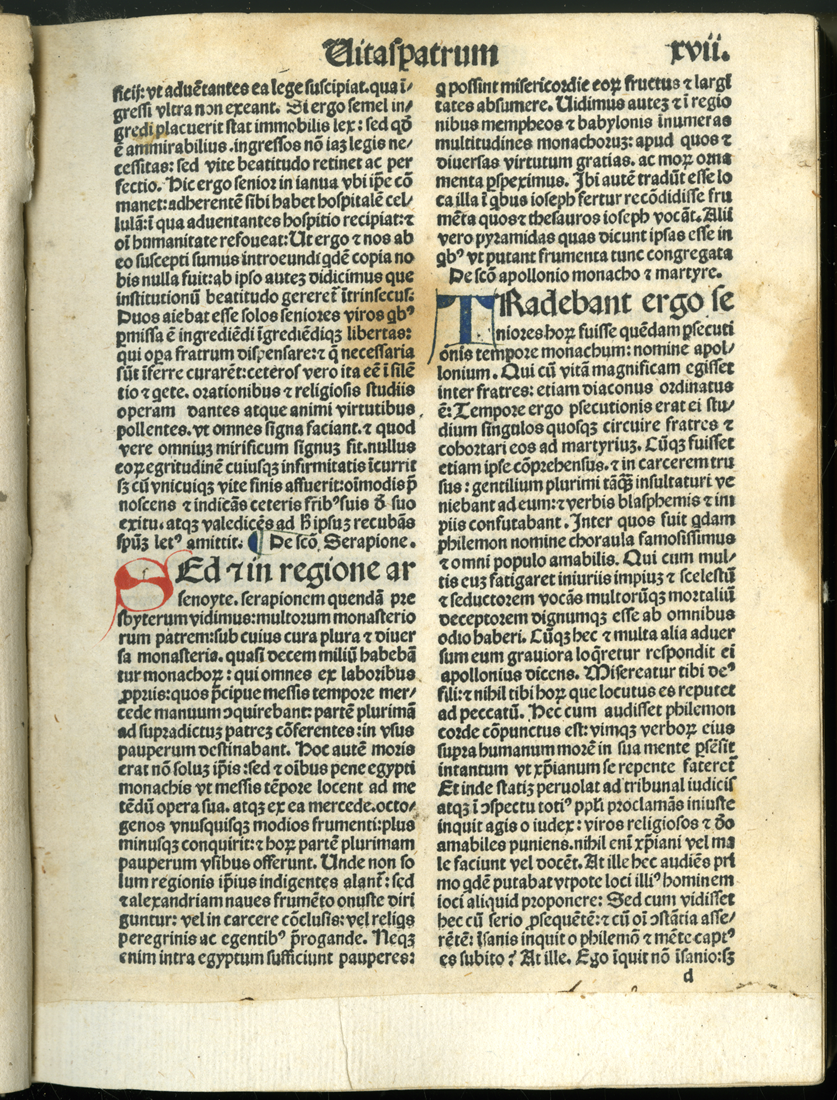 Uitaspatrum
xvii.
ficij: vt aduētantes ea lege suscipiat. qua ī⸗
gressi vltra non exeant. Si ergo semel in⸗
gredi placuerit stat immobilis lex: sed qď
ē ammirabilius. ingressos nō iaꝫ legis ne⸗
cessitas: sed vite beatitudo retinet ac per
fectio. Hic ergo senior in ianua vbi ip̄e cō
manet: adherentē sibi habet hospitalē cel⸗
lulā: ī qua aduentantes hospitio recipiat: ⁊
oī humanitate refoueat: Ut ergo ⁊ nos ab
eo suscepti sumus introeundi qdē copia no
bis nulla fuit: ab ipso auteꝫ didicimus que
institutionū beatitudo gereret̄ ītrinsecus:
Duos aiebat esse solos seniores viros qbꝰ
ꝑmissa ē ingrediēdi īgrediēdiqꝫ libertas:
qui oꝑa fratrum dispensare: ⁊ q̄ necessaria
sūt īferre curarēt: ceteros vero ita eē ī silē
tio ⁊ qete. orationibus ⁊ religiosis studiis
operam dantes atque animi virtutibus
pollentes. vt omnes signa faciant. ⁊ quod
vere omniuꝫ mirificum signuꝫ fit. nullus
eoꝝ egritudinē cuiusqꝫ infirmitatis īcurrit
sꝫ cū vnicuiqꝫ vite finis affuerit: oīmodis p̄
noscens ⁊ indicās ceteris fribꝰ suis ď suo
exitu. atqꝫ valedicēs ad ħ ipsuꝫ recubās
sp̄uꝫ letꝰ amittit. ¶ De scō Serapione.
SEd ⁊ in regione ar
senoyte. serapionem quendā pre
sbyterum vidimus: multorum monasterio
rum patrem: sub cuius cura plura ⁊ diuer
sa monasteria. quasi decem miliū habebā
tur monachoꝝ: qui omnes ex laboribus
ꝓprijs: quos p̄cipue messis tempore mer⸗
cede manuum ꝯquirebant: partē plurimā
ad supradictuꝫ patreꝫ cōferentes: in vsus
pauperum destinabant. Hoc autē moris
erat nō soluꝫ ip̄is: sed ⁊ oībus pene egypti
monachis vt messis tēpore locent ad me
tēdū opera sua. atqꝫ ex ea mercede. octo⸗
genos vnusquisqꝫ modios frumenti: plus
minusqꝫ conquirit: ⁊ hoꝝ partē plurimam
pauperum vsibus offerunt. Unde non so
lum regionis ip̄ius indigentes alant̄: sed
⁊ alexandriam naues frumēto onuste diri
guntur: vel in carcere cōclusis: vel reliqs
peregrinis ac egentibꝰ p̄rogande. Neqꝫ
enim intra egyptum sufficiunt pauperes:
q possint misericordie eoꝝ fructus ⁊ largi
tates absumere. Uidimus auteꝫ ⁊ ī regio
nibus mempheos ⁊ babylonis īnumeras
multitudines monachoruꝫ: apud quos ⁊
diuersas virtutum gratias. ac moꝝ orna
menta ꝑspeximus. Ibi autē tradūt esse lo
ca illa ī qbus ioseph fertur recōdidisse fru
mēta quos ⁊ thesauros ioseph vocāt. Alii
vero pyramidas quas dicunt ipsas esse in
qbꝰ vt putant frumenta tunc congregata
De scō apollonio monacho ⁊ martyre.
TRadebant ergo se
niores hoꝝ fuisse quēdam ꝑsecuti
onis tempore monachum: nomine apol⸗
lonium. Qui cū vitā magnificam egisset
inter fratres: etiam diaconus ordinatus
ē: Tempore ergo ꝑsecutionis erat ei stu⸗
dium singulos quosqꝫ circuire fratres ⁊
cohortari eos ad martyriuꝫ. Cūqꝫ fuisset
etiam ipse cōprehensus. ⁊ in carcerem tru
sus: gentilium plurimi tāqꝫ insultaturi ve
niebant ad eum: ⁊ verbis blasphemis ⁊ im
piis confutabant. Inter quos fuit qdam
philemon nomine choraula famosissimus
⁊ omni populo amabilis. Qui cum mul⸗
tis euꝫ fatigaret iniuriis impiuꝫ ⁊ scelestū
⁊ seductorem vocās multorūqꝫ mortaliū
deceptorem dignumqꝫ esse ab omnibus
odio haberi. Cūqꝫ hec ⁊ multa alia aduer
sum eum grauiora loq̄retur respondit ei
apollonius dicens. Misereatur tibi deꝰ
fili: ⁊ nihil tibi hoꝝ que locutus es reputet
ad peccatū. Hec cum audisset philemon
corde cōpunctus est: vimqꝫ verboꝝ eius
supra humanum morē in sua mente ꝑsēsit
intantum vt xp̄ianum se repente fateret̄
Et inde statiꝫ peruolat ad tribunal iudicis
atqꝫ ī ꝯspectu totiꝰ ppl̄i proclamās iniuste
inquit agis o iudex: viros religiosos ⁊ ďo
amabiles puniens. nihil enī xp̄iani vel ma
le faciunt vel docēt. At ille hec audiēs pri
mo qdē putabat vtpote loci illiꝰ hominem
ioci aliquid proponere: Sed cum vidisset
hec cū serio ꝓsequētē: ⁊ cū oī ꝯstātia asse⸗
rētē: īsanis inquit o philemō ⁊ mēte captꝰ
es subito? At ille. Ego īquit nō īsanio: sꝫ
d